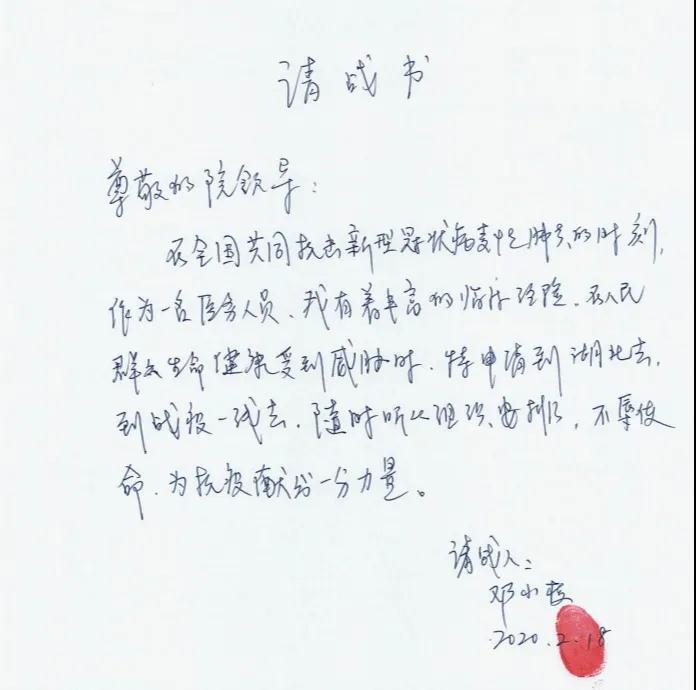 请战书
尊敬的院领导：
在全国共同抗击新型冠状病毒性肺炎的时刻，
作为一名医务人员、我有着丰富的临床经验、在人民
群众生命健康受到威胁时、特申请到湖北去，
到战疫一线去、随时听从组织安排，不辱使
命、为抗疫献出一分力量。
请战人：
邓小
2020.2.18